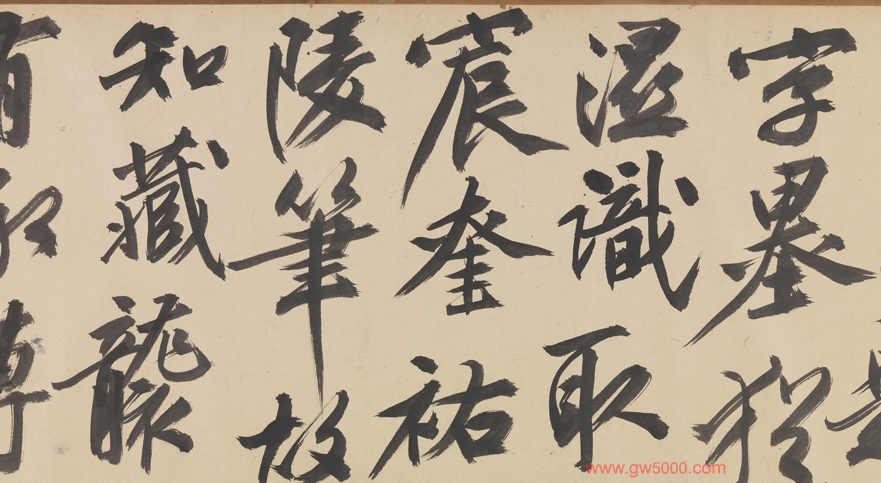 字墨猶
濕識取
宸奎祐
陵筆故
知藏襲
有
www.gw5000.com